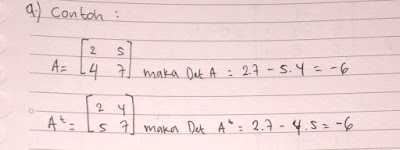 a.) Contoh :
A = [2 5
4 7] maka Det A = 2.7 - 5.4 = -6
Aᵗ = [2 4
5 7] maka Det Aᵗ = 2.7 - 4.5 = -6